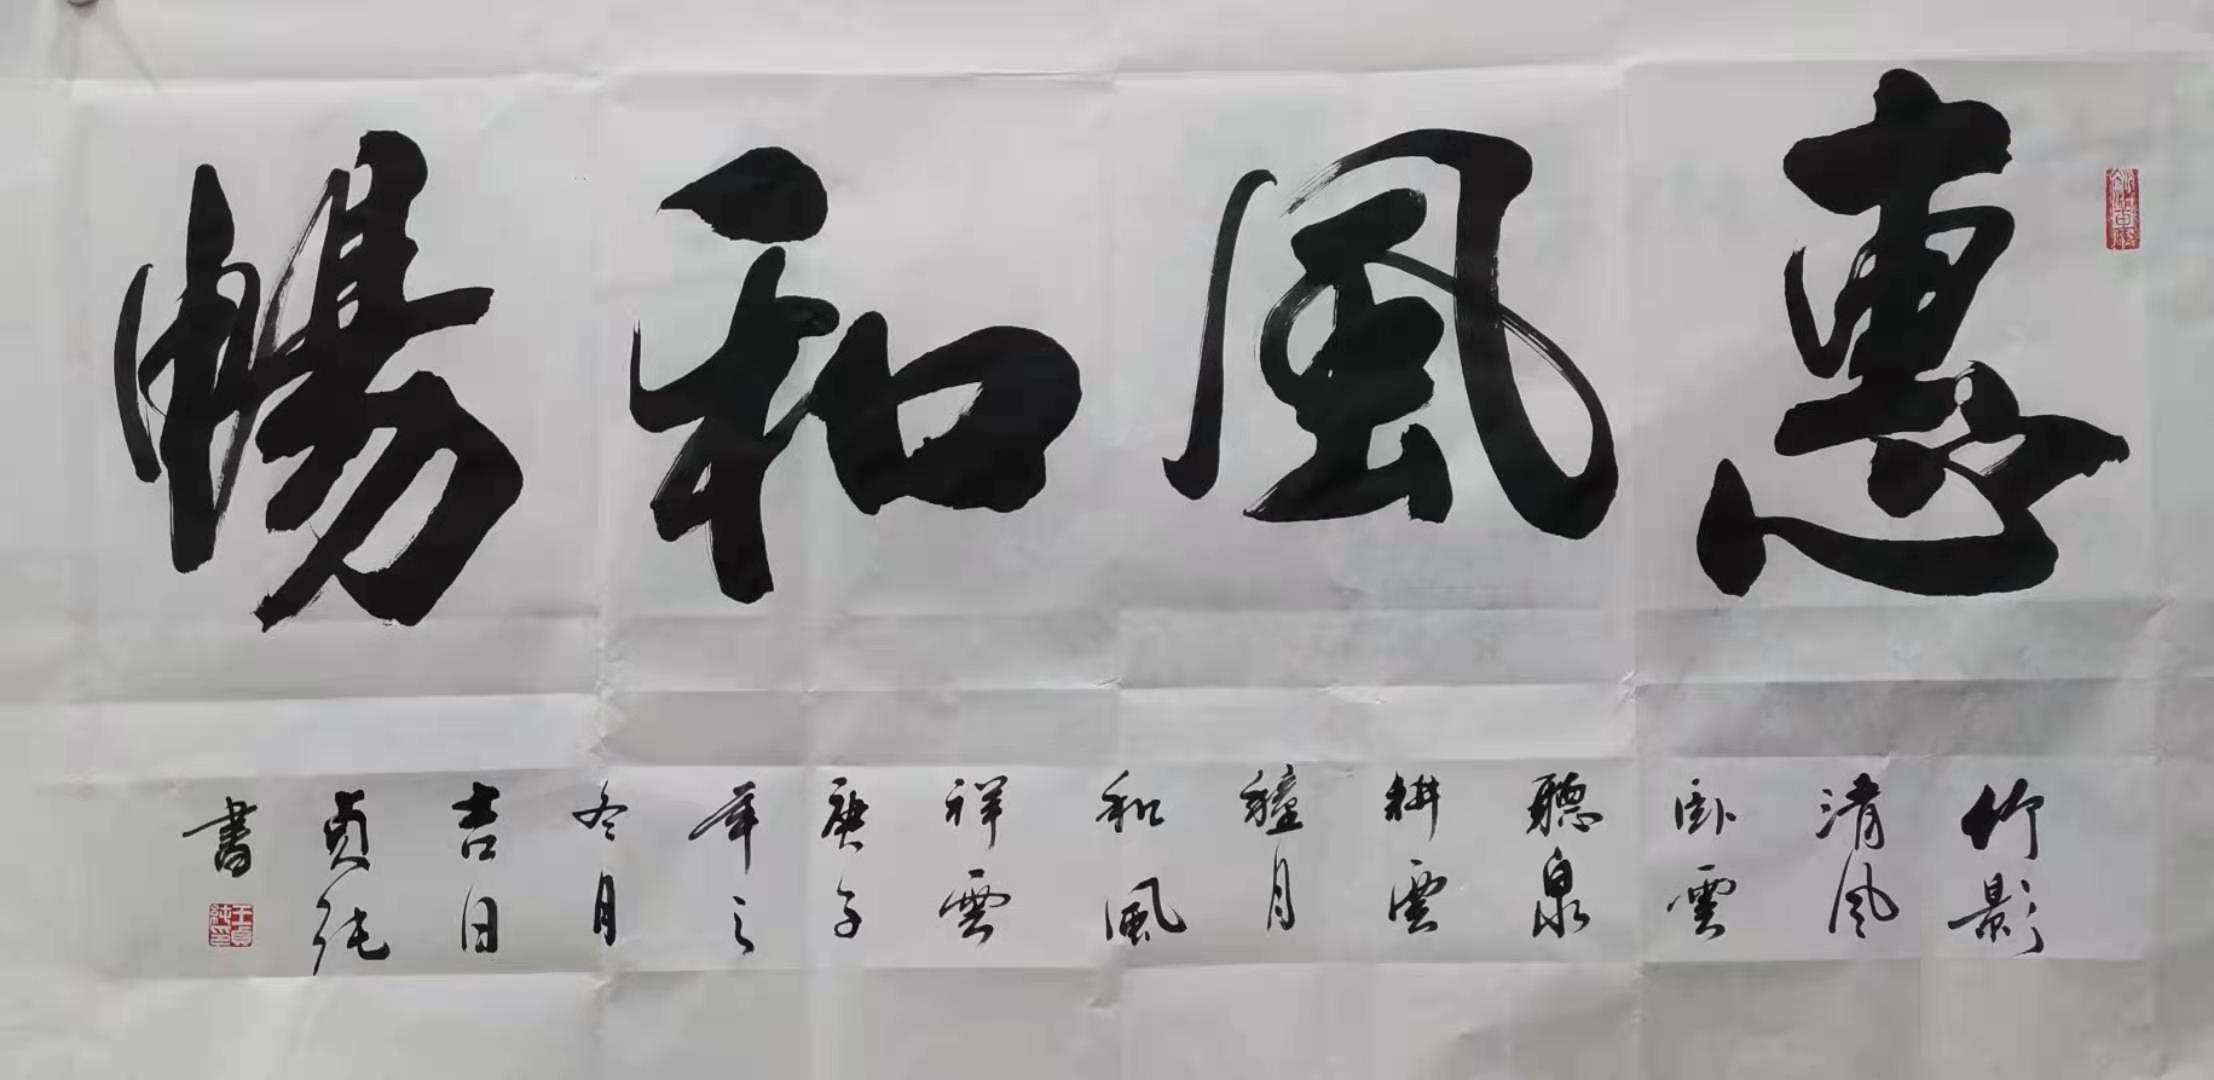 惠風和暢
竹影
清风
卧雲
聽泉
耕雲
種月
和風
祥雲
庚子
年之
冬月
吉日
貞純
書
王貞純印